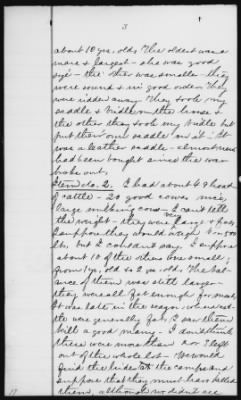 3
about 10 yrs. old. The oldest was a
mare & largest - she was good
size - the other was smaller - they
were sound & in good order. They
were ridden away. They took my
saddle & bridle on the horse &
the other they took my bridle but
put their own saddle on it. It
was a leather saddle - almost new
had been bought since the war
broke out.
Item No. 2. I had about 49 head
of cattle - 20 good cows, nice,
large milking cows - I can't tell
the weight - they were large & fat
I suppose they would weigh
lbs. but I can't say. I suppose
about 10 of the others were small;
from 1 yr. old to 2 yrs. old. The bal-
ance of them was still larger -
they were all fat enough for meat.
It was late in the season and
cattle were generally fat. I saw them
kill a good many - I don't think
there were more than 2 or 3 left
out of the whole lot. We would
find the hides at the camps and
suppose that they must have killed
them, although we didn't see